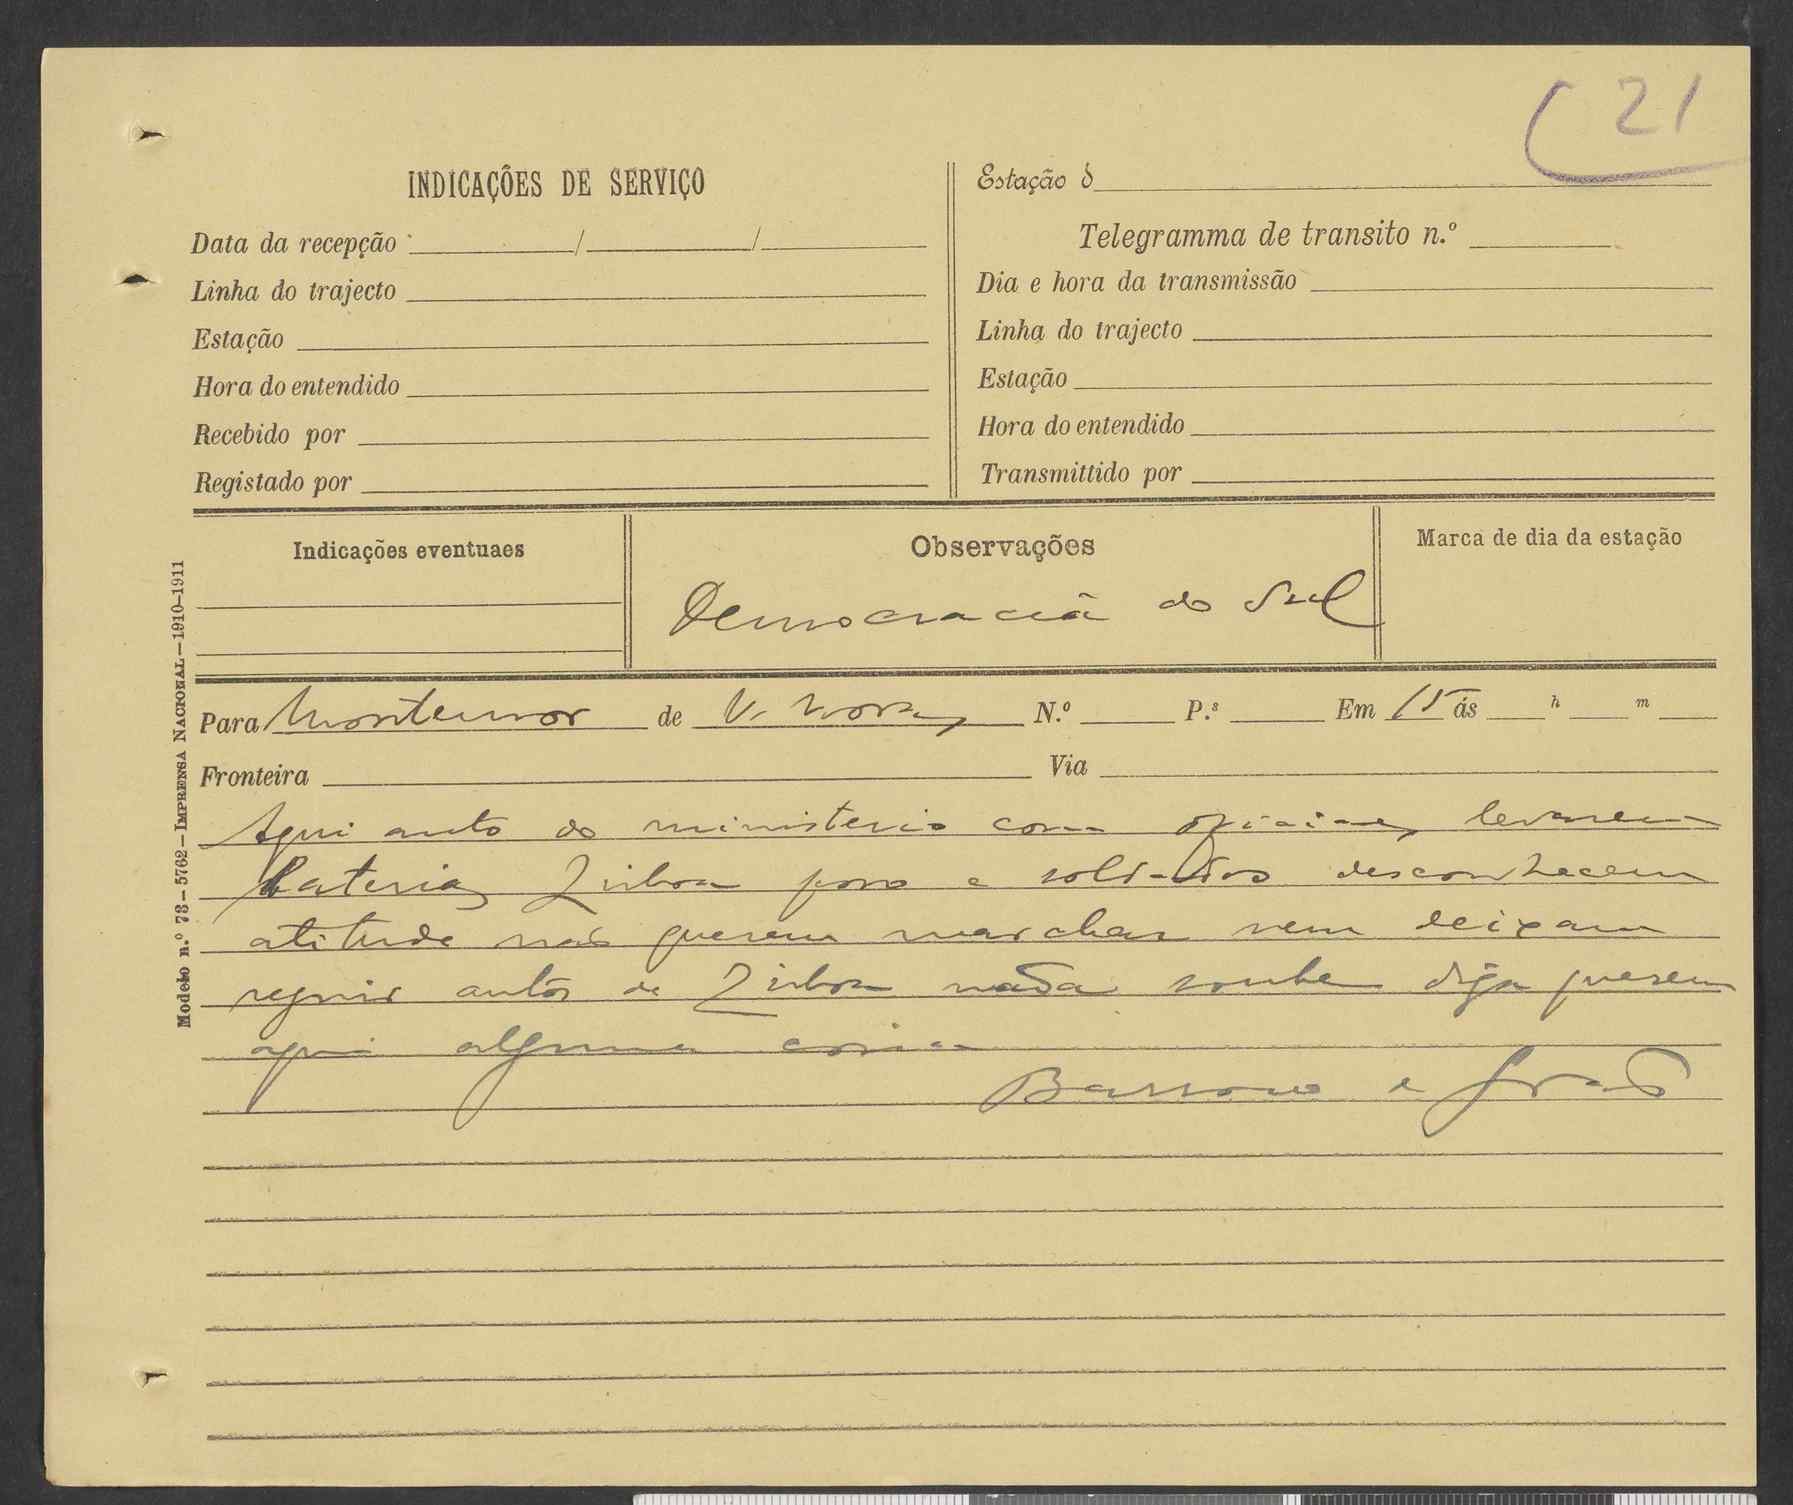 (21
INDICAÇÕES DE SERVIÇO
Data da recepção / /
Linha do trajecto
Estação
Hora do entendido
Recebido por
Registado por
Estação d
Telegramma de transito n.º
Dia e hora da transmissão
Linha do trajecto
Estação
Hora do entendido
Transmittido por
Indicações eventuaes
Observações
Democracia do Sul
Marca de dia da estação
Para Montemor de V. Nova N.º P.s Em 15 ás h m
Fronteira Via
Aqui auto do ministerio com oficiaes levarem
bateria Lisboa povo e soldados desconhecem
atitude não querem marchar nem deixam
seguir autos de Lisboa nada soube diga querem
aqui alguma coisa
Barroso e Irmão
Modelo n.º 73–5762–IMPRENSA NACIONAL–1910-1911